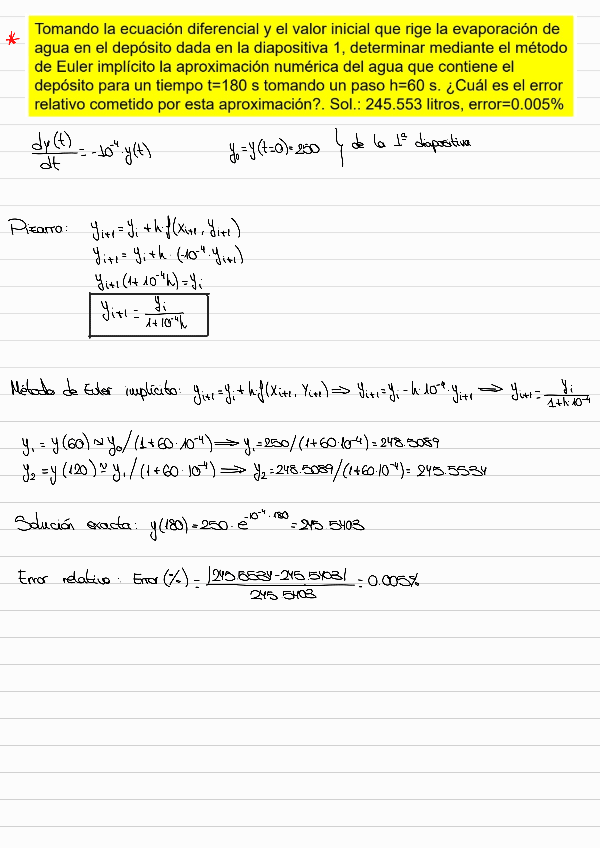 * Tomando la ecuación diferencial y el valor inicial que rige la evaporación de
agua en el depósito dada en la diapositiva 1, determinar mediante el método
de Euler implícito la aproximación numérica del agua que contiene el
depósito para un tiempo t=180 s tomando un paso h=60 s. ¿Cuál es el error
relativo cometido por esta aproximación?. Sol.: 245.553 litros, error=0.005%
dy(t)/dt = -10⁻⁴·y(t) y₀=y(t=0)=250 } de la 1ª diapositiva
Pizarra: yᵢ₊₁=yᵢ+h·f(xᵢ₊₁, yᵢ₊₁)
yᵢ₊₁=yᵢ+h·(-10⁻⁴·yᵢ₊₁)
yᵢ₊₁(1+10⁻⁴h)=yᵢ
yᵢ₊₁ = yᵢ/(1+10⁻⁴h)
Método de Euler implícito: yᵢ₊₁=yᵢ+h·f(xᵢ₊₁, yᵢ₊₁) ⟹ yᵢ₊₁=yᵢ-h·10⁻⁴·yᵢ₊₁ ⟹ yᵢ₊₁=yᵢ/(1+h·10⁻⁴)
y₁ = y(60) ≈ y₀/(1+60·10⁻⁴) ⟹ y₁=250/(1+60·10⁻⁴)=248.5089
y₂ = y(120) ≈ y₁/(1+60·10⁻⁴) ⟹ y₂=248.5089/(1+60·10⁻⁴)= 245.5534
Solución exacta: y(180)=250·e^(-10⁻⁴·180)=245.5403
Error relativo: Error(%) = |245.5534-245.5403|/245.5403 = 0.005%